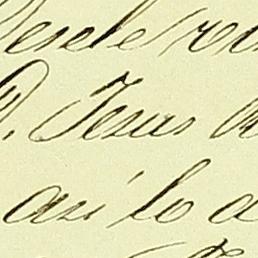 Desde
D. Jesus
así lo a